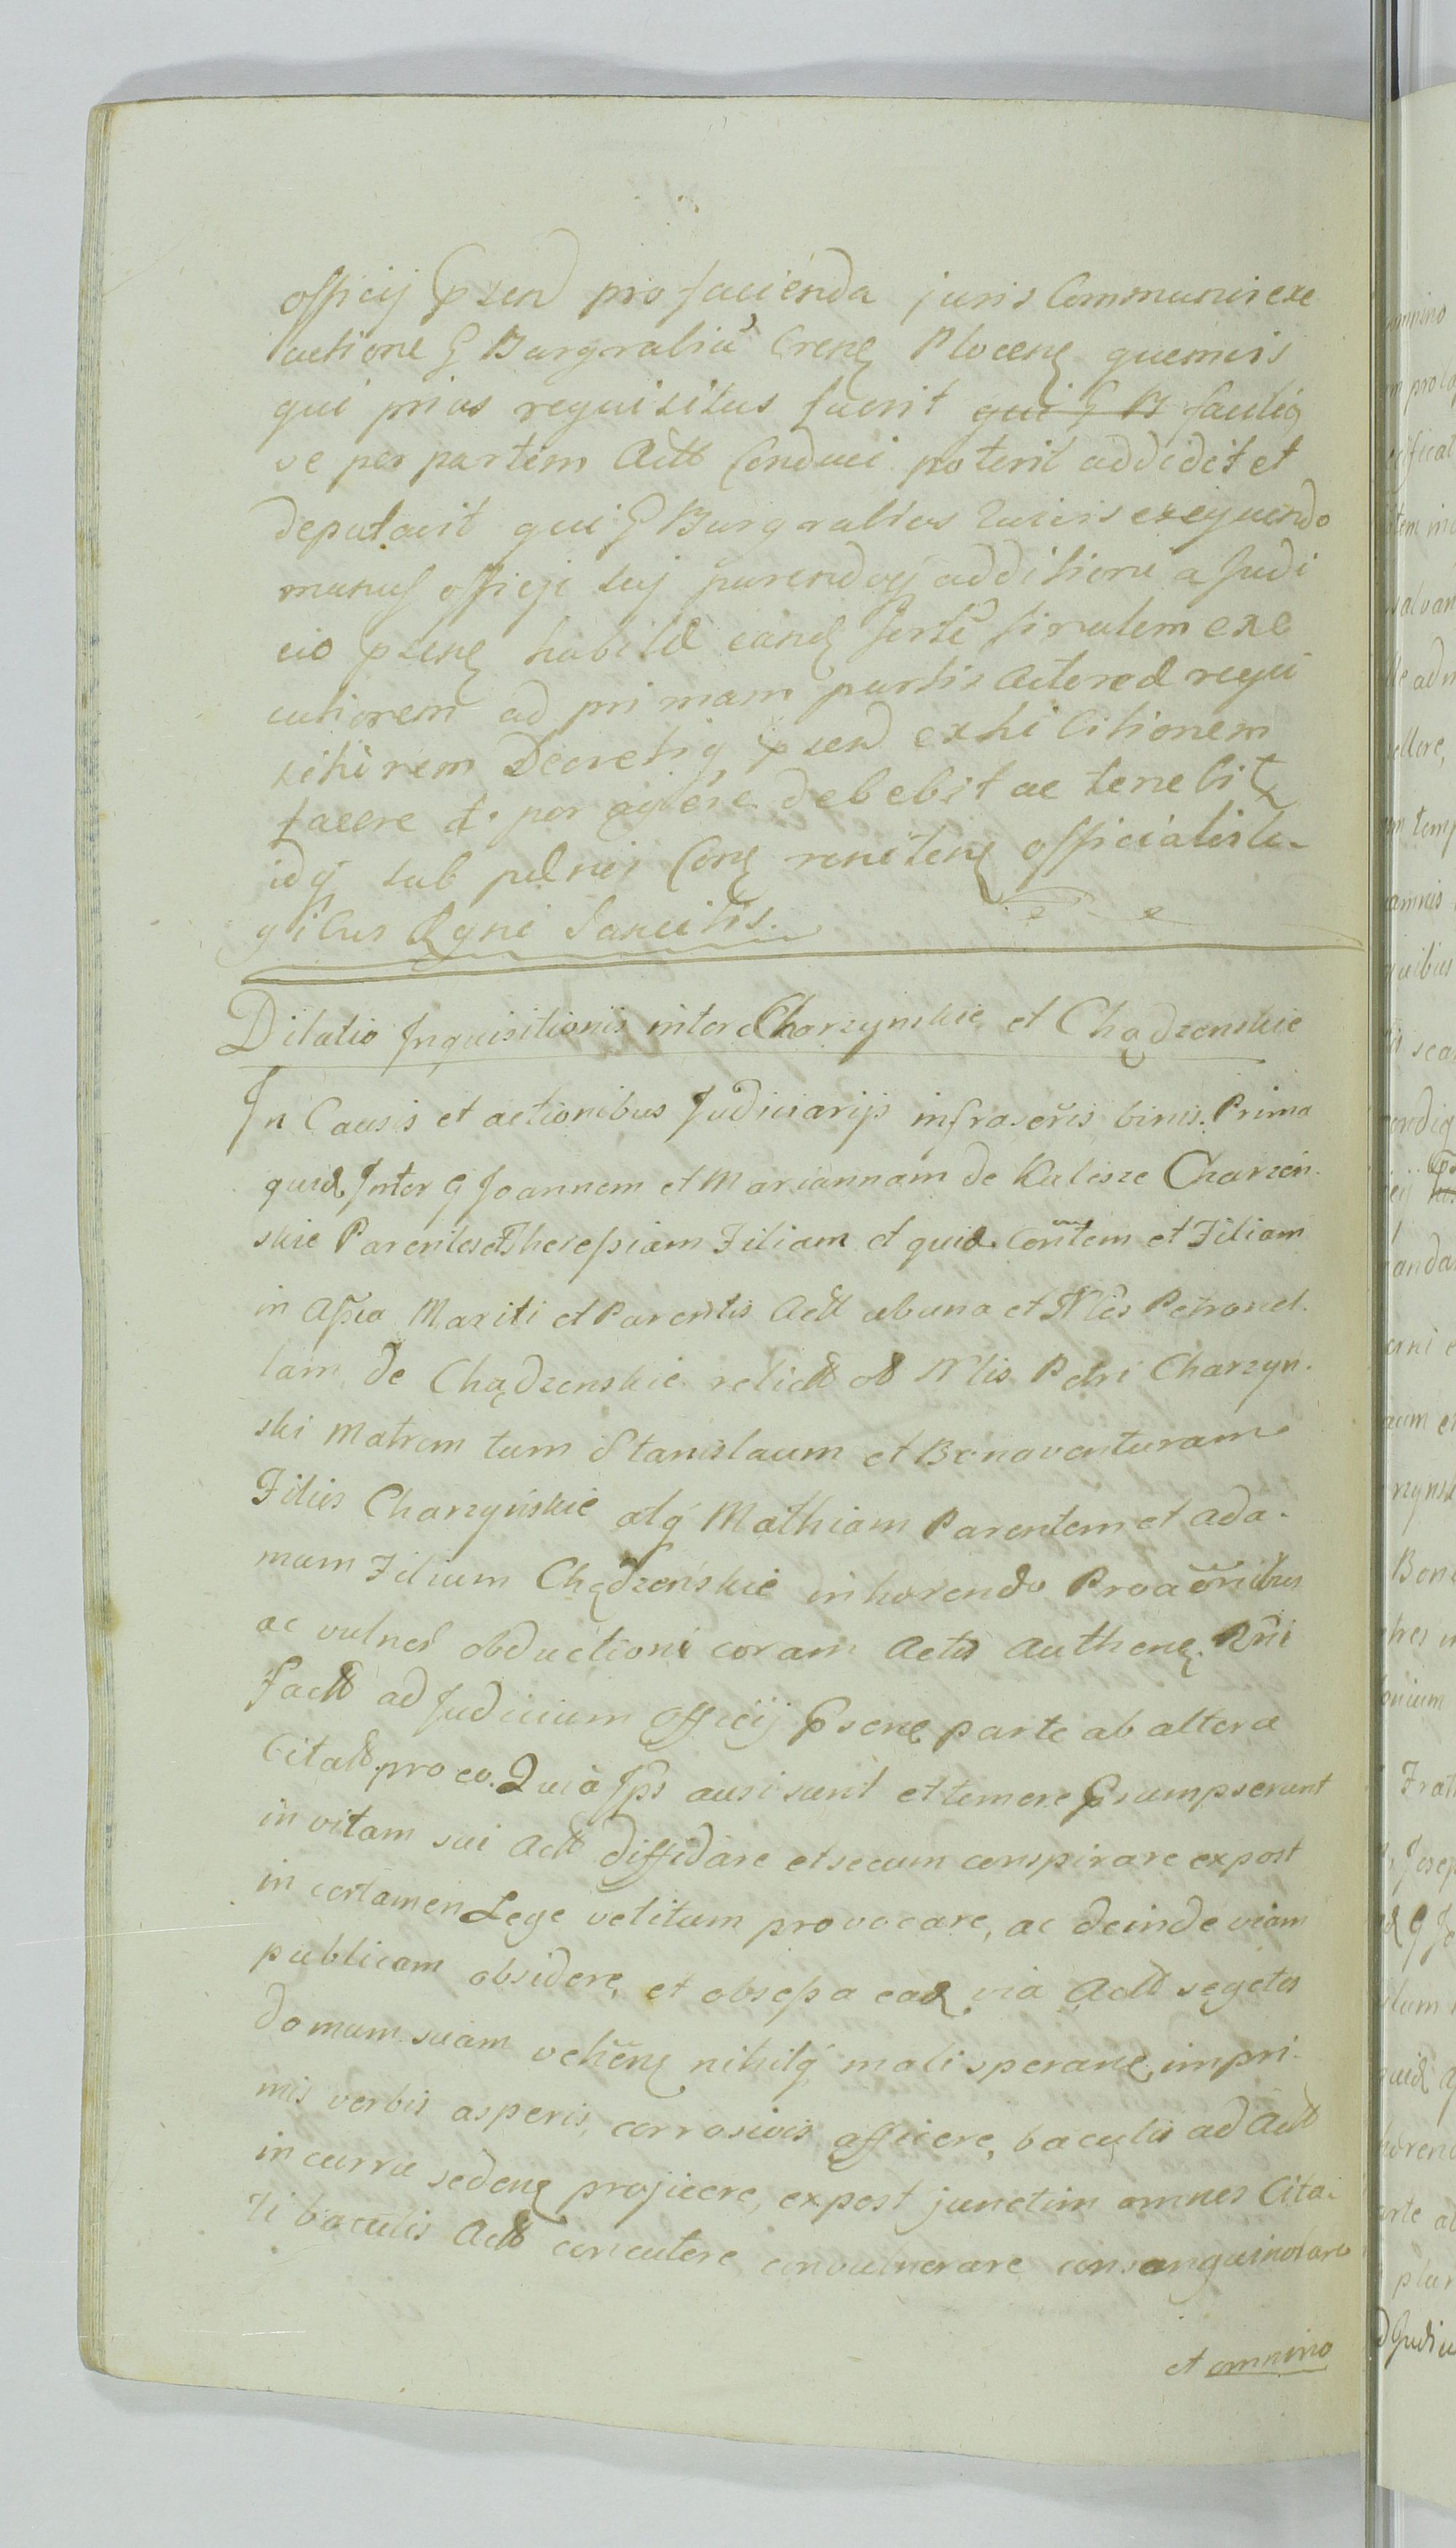 officij pzend pro facienda juris Communis exe
cutione G Burgrabiu Crens Plocens quemvis
qui prius requisitus fuerit qui G B facilig
ve per partem Actt Conduci poterit addidit et
deputavit qui G Burgrabius Juris exequendo
munus officij suj parendoq additioni a Judi
cio pzens habitae eand forte simulem exe
cutionem ad primam partis Actorea requi
sitionem Decretiq pzend exhibitionem
facere et peragere debebit ac tenebit
idq sub paenis Cons renitens officialis le-
gibus Rgni Sancitis.
Dilatio Inquisitionis inter Charzynskie et Chądzenskie
In Causis et actionibus Judiciarijs infrascris binis. Prima
quid Inter G Joannem et Mariannam de Kalesze Charzen-
skie Parentes et Theressiam Filiam et quid contem et Filiam
in assia Mariti et Parentis Actt ab una et Nles Petronel-
lam de Chądzenskie relict ol Nlis Petri Charzyn-
ski Matrem tum Stanislaum et Bonaventuram
Filios Charzyńskie atq Mathiam Parentem et Ada-
mum Filium Chądzeńskie inhaerendo Proaonibus
ac vulner obductioni coram Actis Authens Rni
factt ad Judicium Officij Psens parte ab altera
Citatt pro eo. Quia Ips ausi sunt et temere Psumpserunt
in vitam sui Actt diffidare et secum conspirare expost
in certamen Lege vetitum provocare, ac deinde viam
publicam obsidere, et obsessa ead via Actt segetes
domum suam vehens nihilq mali sperans impri-
mis verbis asperis, corrosivis afficere, baculis ad Actt
in curru sedens projicere, expost junctim omnes Cita-
ti baculis Actt concutere convulnerare consanguinolare
et omnino